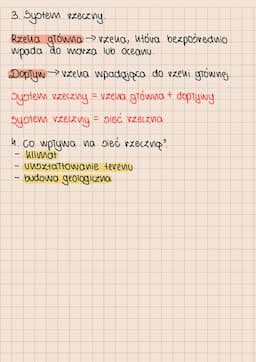 3. System rzeczny.
Rzeka główna → rzeka, która bezpośrednio
wpada do morza lub oceanu.
Dopływ → rzeka wpadająca do rzeki głównej
System rzeczny = rzeka główna + dopływy
System rzeczny = sieć rzeczna
4. Co wpływa na sieć rzeczną?
- klimat
- ukształtowanie terenu
- budowa geologiczna